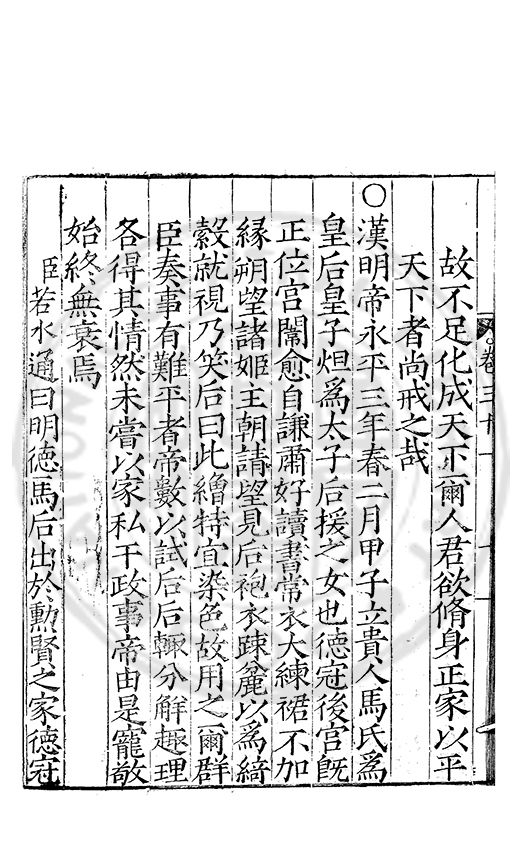 故不足化成天下爾人君欲脩身正家以平
天下者尚戒之哉
○漢明帝永平三年春二月甲子立貴人馬氏爲
皇后皇子炟爲太子后援之女也德冠後宮旣
正位宮闈愈自謙肅好讀書常衣大練裙不加
緣朔望諸姬主朝請望見后袍衣疎麄以爲綺
縠就視乃笑后曰此繒特宜染色故用之爾群
臣奏事有難平者帝數以試后后輒分解趣理
各得其情然未嘗以家私干政事帝由是寵敬
始終無衰焉
臣若水通曰明德馬后出於勳賢之家德冠